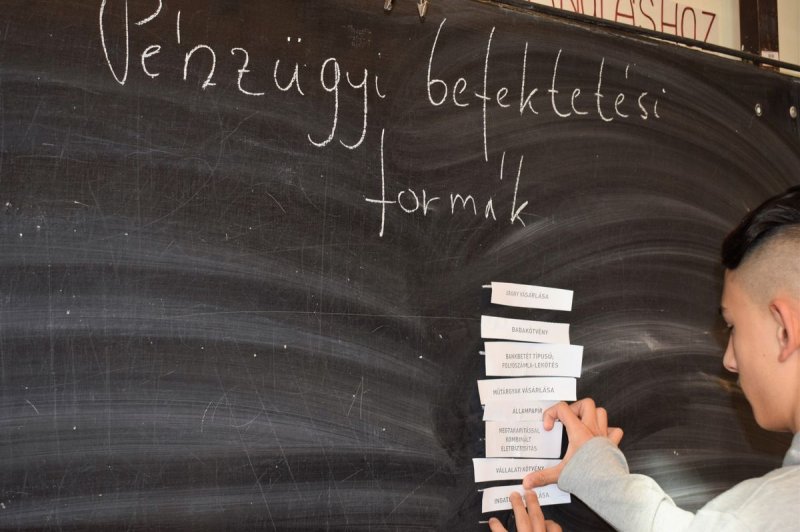 ANULÁSHOZ
Pénzügyi befektetési
formák
ARANY VÁSÁRLÁSA
BABAKÖTVÉNY
BANKBETÉT TÍPUSÚ,
FOLYÓSZÁMLA-LEKÖTÉS
MŰTÁRGYAK VÁSÁRLÁSA
ÁLLAMPAPÍR
MEGTAKARÍTÁSSAL
KOMBINÁLT
ÉLETBIZTOSÍTÁS
VÁLLALATI KÖTVÉNY